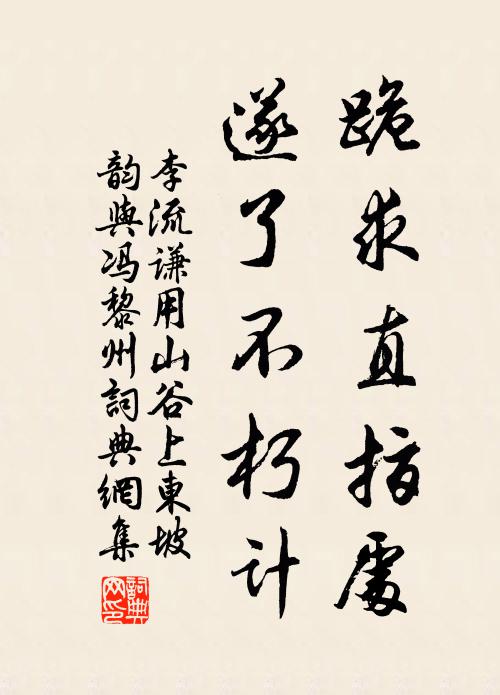 跪求直指處
遂了不朽计
李流谦用山谷上東坡
韵與冯黎州詞典網集
詞典網印